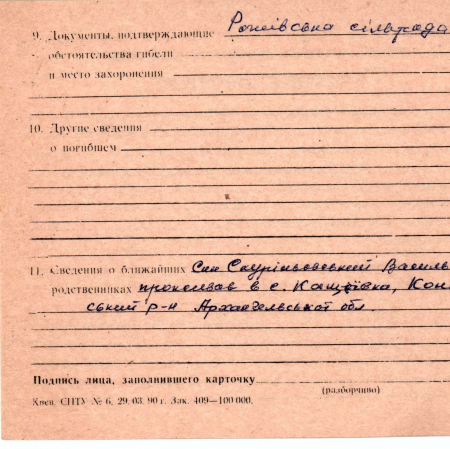 9. Документы, подтверждающие Рокнівська сільрада
обстоятельства гибели
и место захоронения
10. Другие сведения
о погибшем
11. Сведения о ближайших Син Василь
родственниках проживав в с. Кон
ський р-н Архангельської обл.
Подпись лица, заполнившего карточку
(разборчиво)
Киев. СПТУ № 6. 29. 03. 90 г. Зак. 409—100 000.